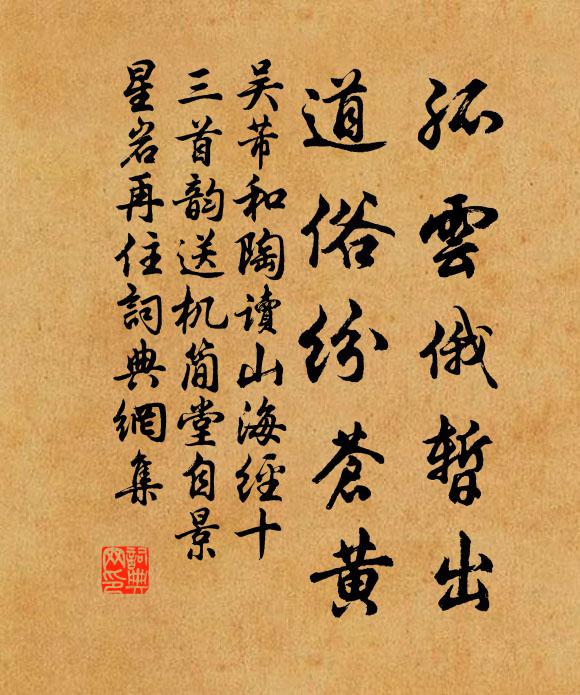 孤雲俄暫出
道俗紛蒼黃
吴芾和陶讀山海經十
三首韵送机简堂自景
星岩再住詞典網集
詞典网印